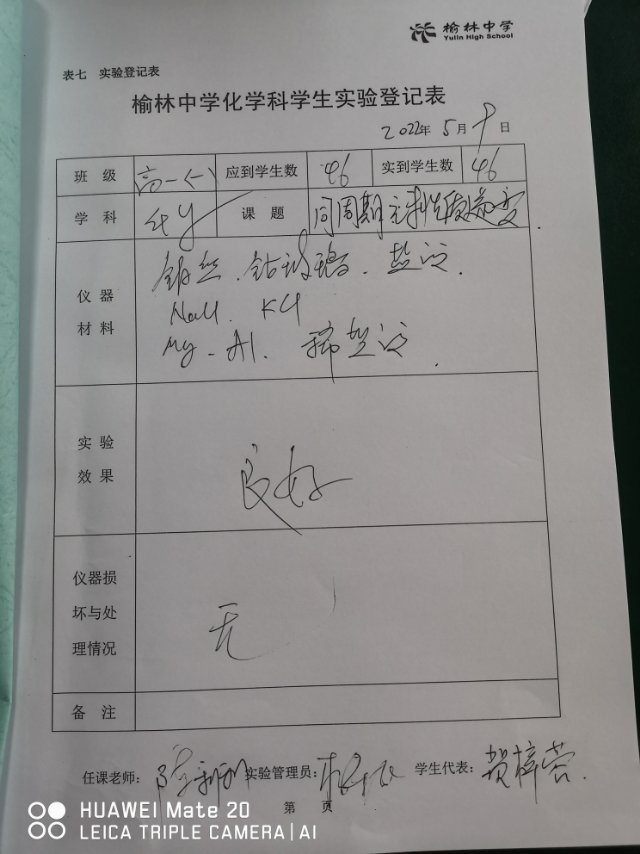 榆林中学
Yulin High School
表七 实验登记表
榆林中学化学科学生实验登记表
2022年 5月 9日
班级 高一(一) 应到学生数 46 实到学生数 46
学科 化学 课题 同周期元素性质递变
仪器材料 铂丝、钴玻璃、盐酸
NaCl KCl
Mg Al 稀盐酸
实验效果 良好
仪器损坏与处理情况 无
备注
任课老师: 实验管理员: 学生代表: 贺梓蓉
第 页
HUAWEI Mate 20
LEICA TRIPLE CAMERA | AI